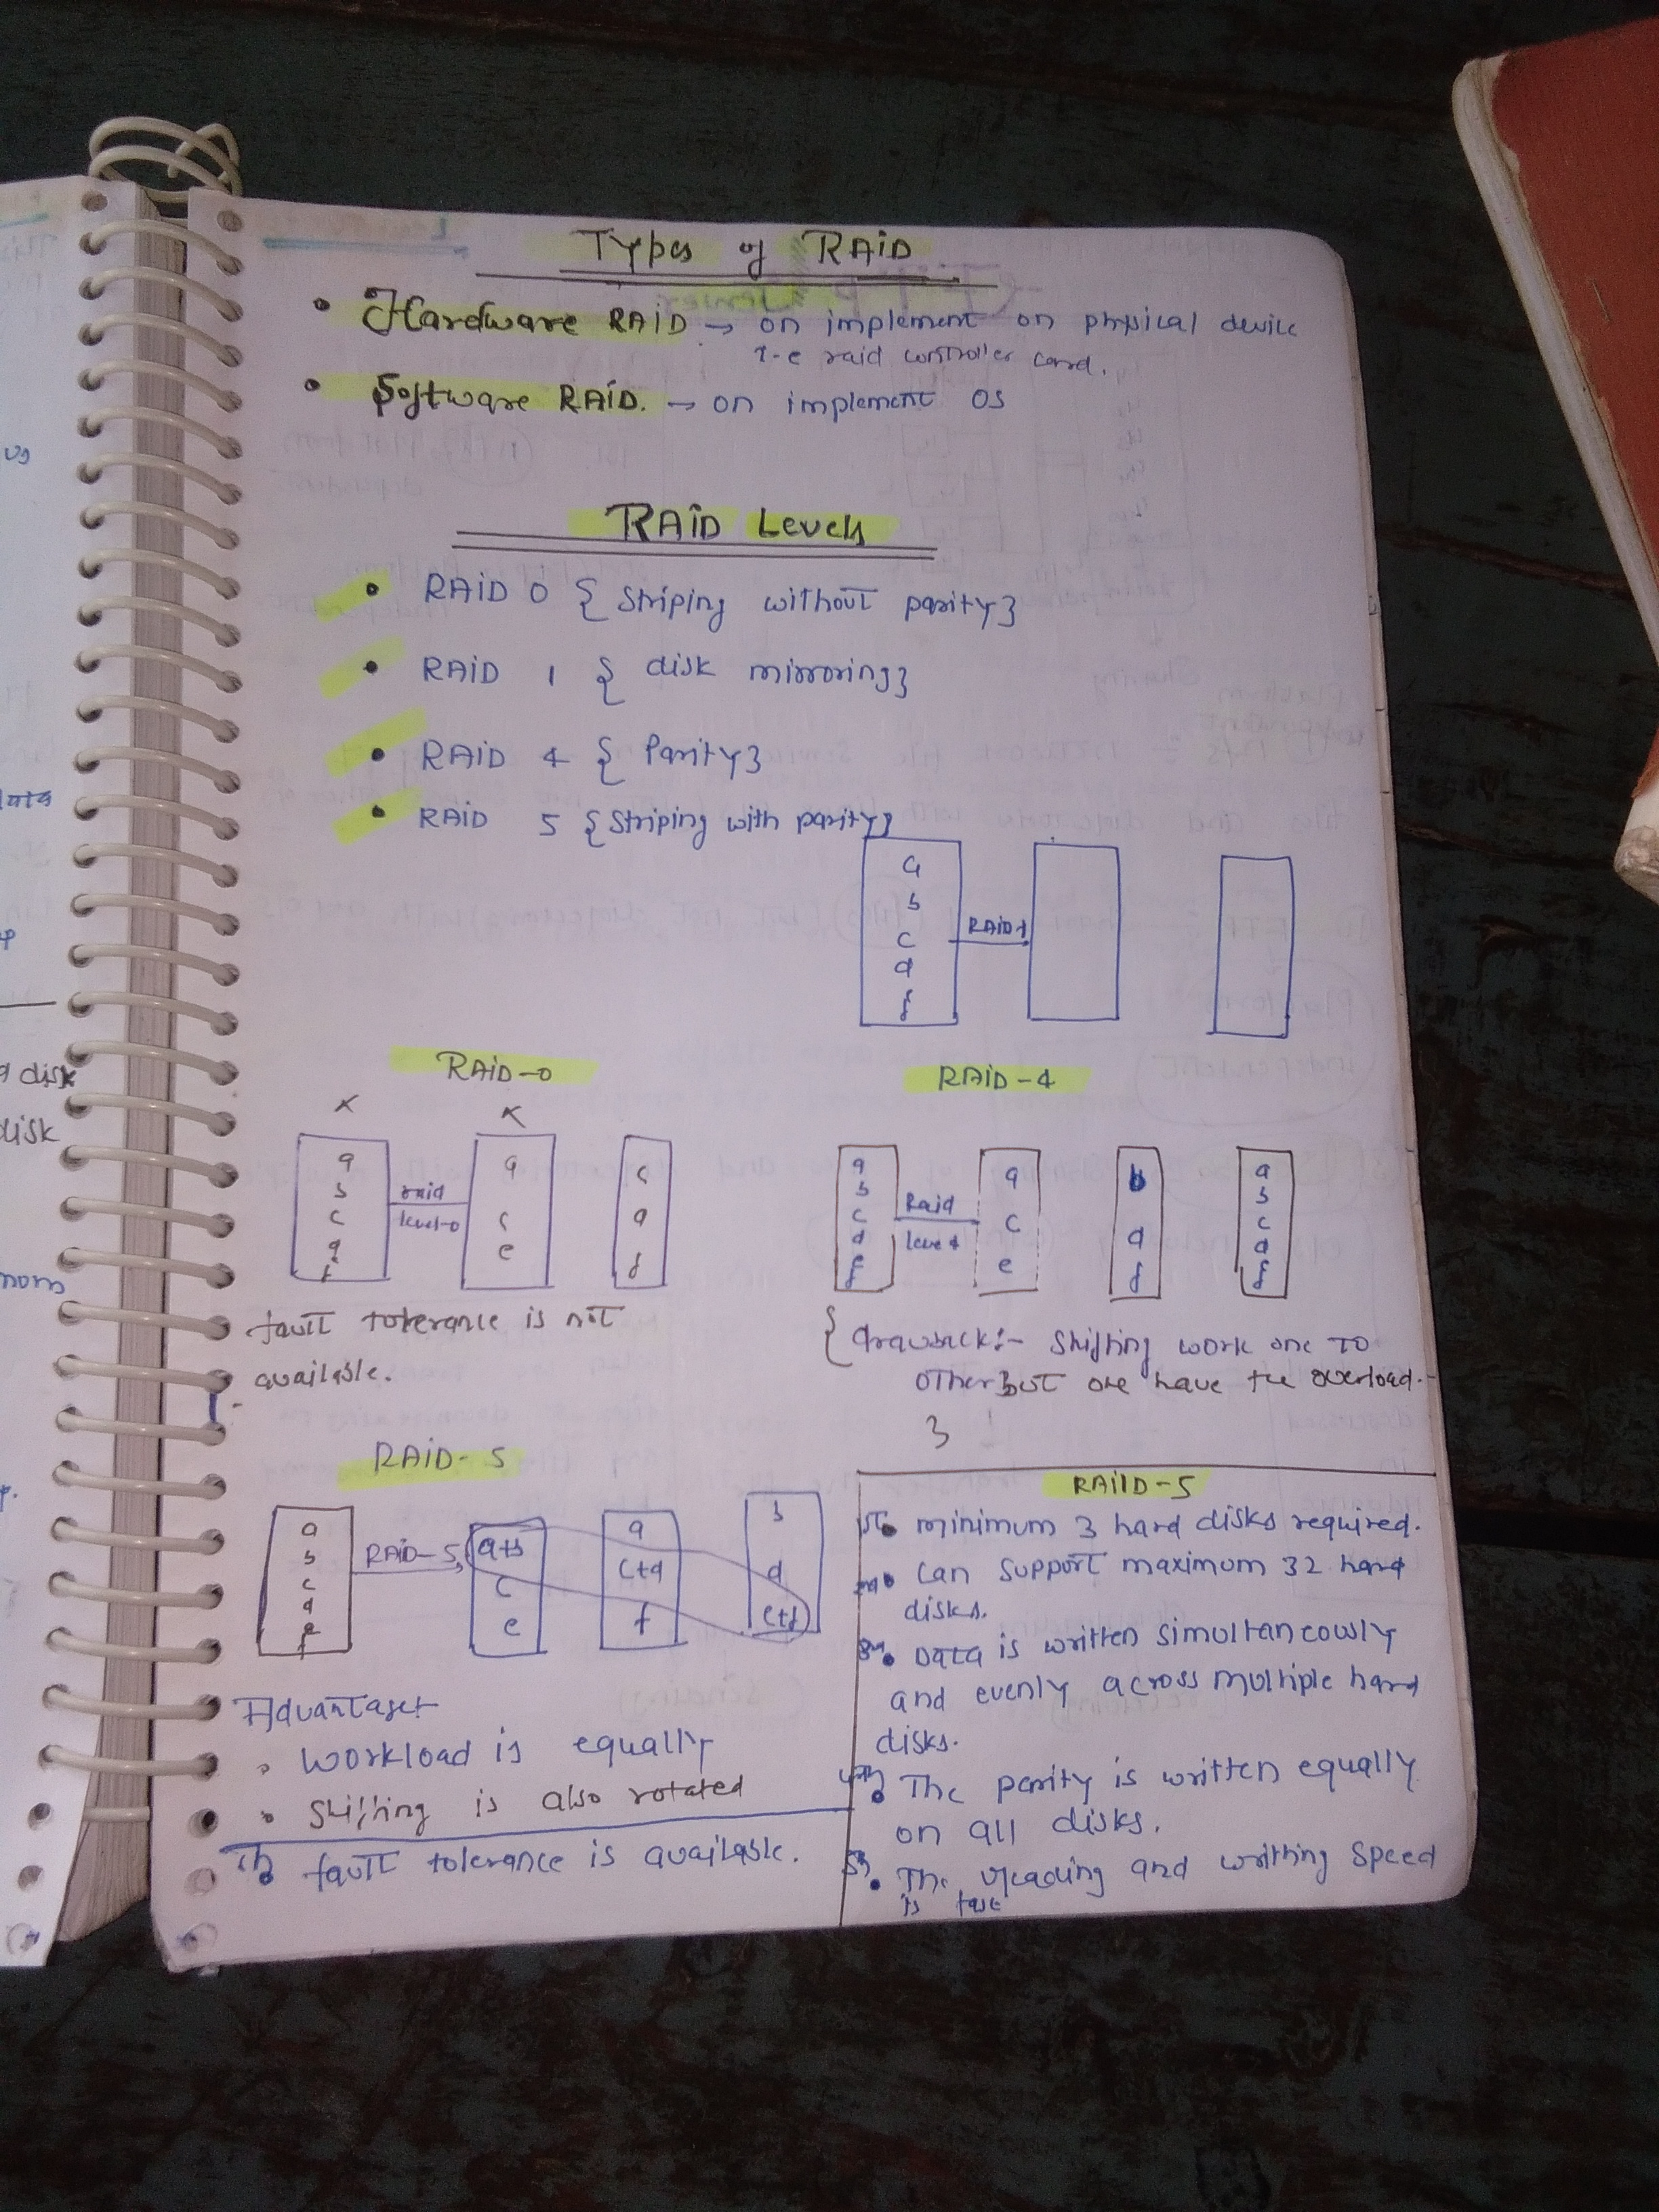 Types of RAID
• Hardware RAID → on implement on physical device
i-e raid controller card.
• Software RAID. → on implement OS
RAID Levels
• RAID 0 { Striping without parity}
• RAID 1 { disk mirroring}
• RAID 4 { Parity}
• RAID 5 { Striping with parity}
a
b
c
d
f
RAID-1
RAID-0
x x
a
b
c
d
f
raid
level-0
a
c
e
c
d
f
fault tolerance is not
available.
RAID-4
a
b
c
d
e
f
Raid
level 4
a
c
e
b
d
f
a
b
c
d
f
{ drawback:- Shifting work one TO
other but one have the overload.
}
RAID-5
a
b
c
d
e
f
RAID-5
a+b
c
e
a
c+d
f
b
d
e+f
Advantage:-
• workload is equally
• Shifting is also rotated
• fault tolerance is available.
RAIID-5
• minimum 3 hard disks required.
• can support maximum 32 hard
disks.
• Data is written simultaneously
and evenly across multiple hard
disks.
4th • The parity is written equally
on all disks.
5th • The reading and writhing speed
is
us
data
disk
disk